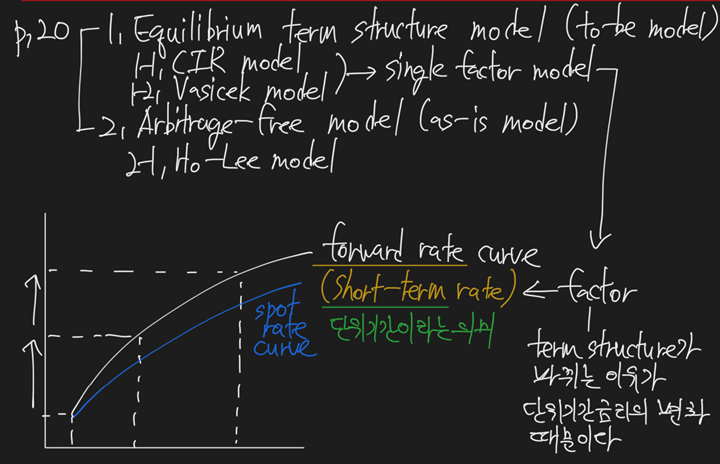 p,20 1, Equilibrium term structure model (to-be model)
1-1, CIR model
1-2, Vasicek model → single factor model
2, Arbitrage-free model (as-is model)
2-1, Ho-Lee model
forward rate curve
(short-term rate) ← factor
단위기간이라는 의미
spot
rate
curve
term structure가
바뀌는 이유가
단위기간금리의 변화
때문이다